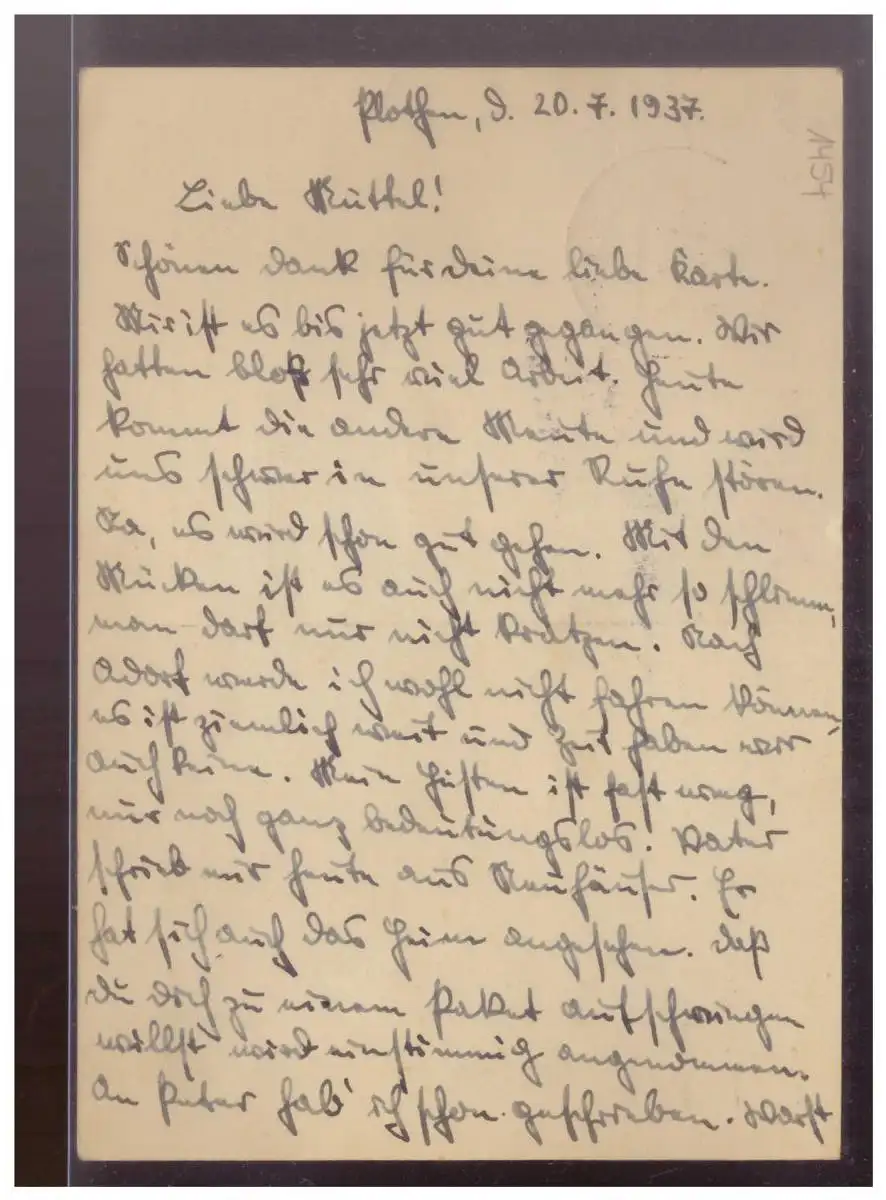 Plothen, d. 20.7.1937.
1454
Liebe Muttel!
Schönen Dank für deine liebe Karte.
Mir ist es bis jetzt gut gegangen. Wir
hatten bloß sehr viel Arbeit. Heute
kommt die andere Meute und wird
uns schwer in unserer Ruhe stören.
Na, es wird schon gut gehen. Mit den
Mücken ist es auch nicht mehr so schlimm,
man darf nur nicht kratzen. Nach
Adorf werde ich wohl nicht fahren können,
es ist ziemlich weit und Zeit haben wir
auch keine. Mein Husten ist fast weg,
nur noch ganz bedeutungslos. Vater
schrieb mir heute aus Neuhäuser. Er
hat sich auch das Heim angesehen. Daß
du dich zu einem Paket aufschwingen
willst wird einstimmig angenommen.
An Peter hab' ich schon geschrieben. Warst